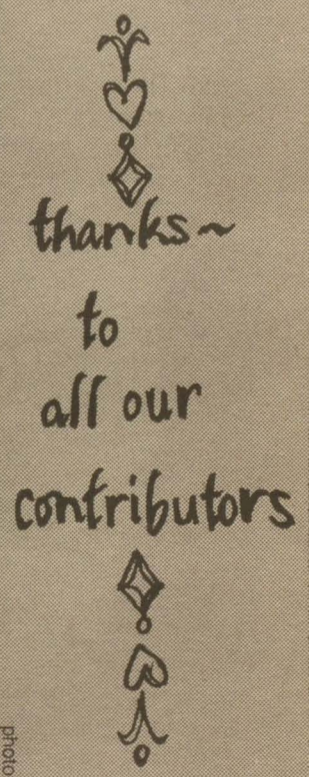 thanks~
to
all our
contributors
photo